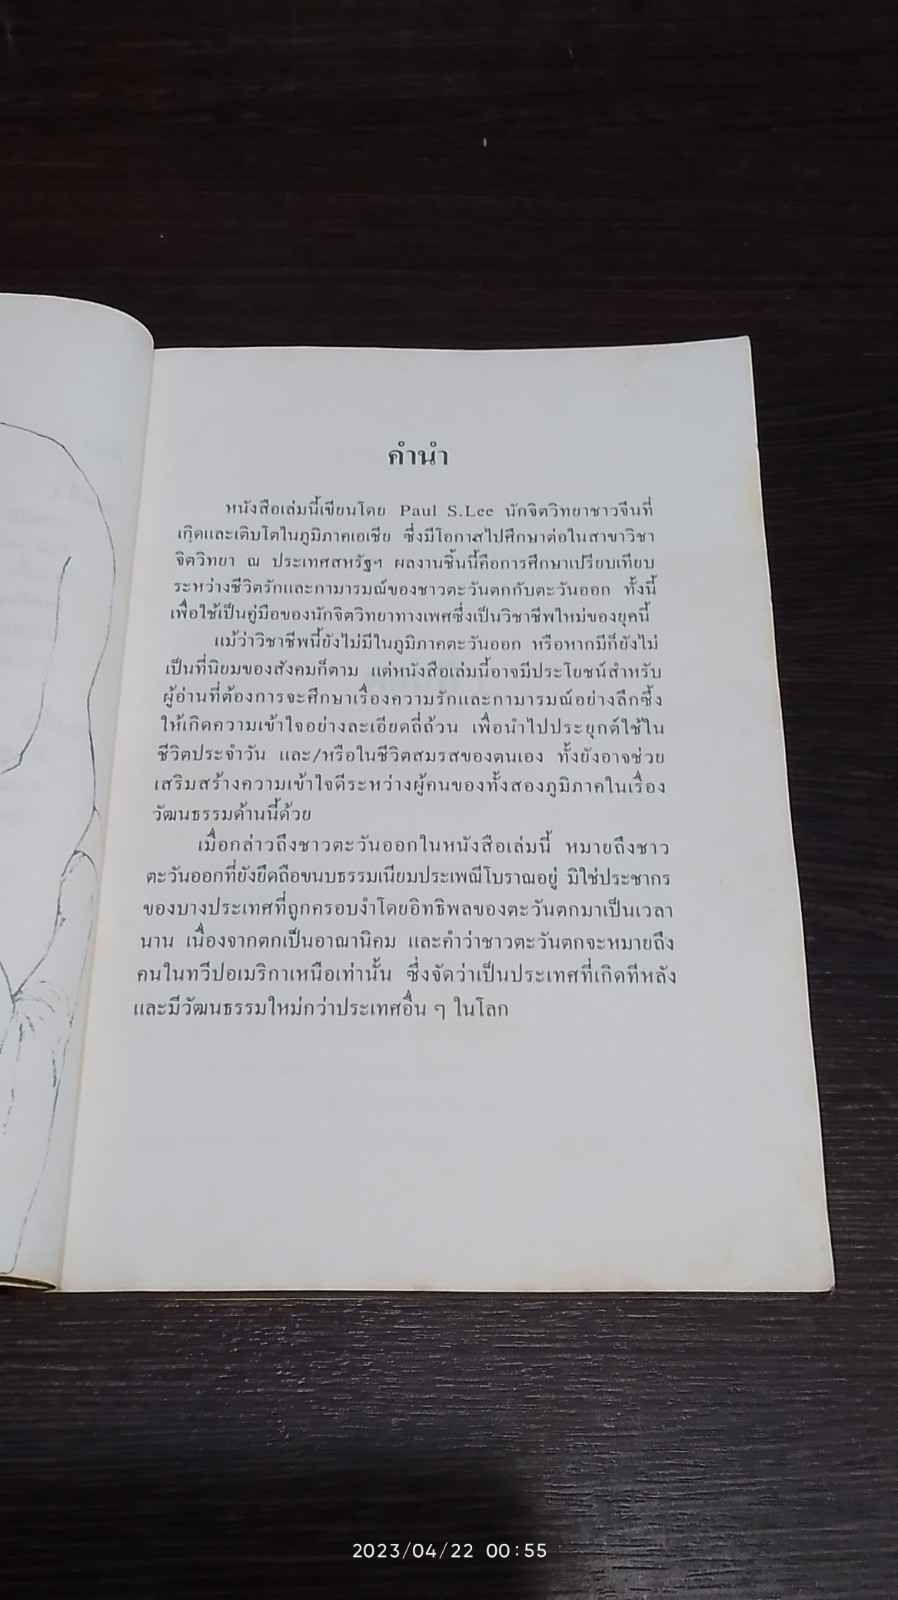 คำนำ
หนังสือเล่มนี้เขียนโดย Paul S.Lee นักจิตวิทยาชาวจีนที่
เกิดและเติบโตในภูมิภาคเอเชีย ซึ่งมีโอกาสไปศึกษาต่อในสาขาวิชา
จิตวิทยา ณ ประเทศสหรัฐฯ ผลงานชิ้นนี้คือการศึกษาเปรียบเทียบ
ระหว่างชีวิตรักและกามารมณ์ของชาวตะวันตกกับตะวันออก ทั้งนี้
เพื่อใช้เป็นคู่มือของนักจิตวิทยาทางเพศซึ่งเป็นวิชาชีพใหม่ของยุคนี้
แม้ว่าวิชาชีพนี้ยังไม่มีในภูมิภาคตะวันออก หรือหากมีก็ยังไม่
เป็นที่นิยมของสังคมก็ตาม แต่หนังสือเล่มนี้อาจมีประโยชน์สำหรับ
ผู้อ่านที่ต้องการจะศึกษาเรื่องความรักและกามารมณ์อย่างลึกซึ้ง
ให้เกิดความเข้าใจอย่างละเอียดถี่ถ้วน เพื่อนำไปประยุกต์ใช้ใน
ชีวิตประจำวัน และ/หรือในชีวิตสมรสของตนเอง ทั้งยังอาจช่วย
เสริมสร้างความเข้าใจดีระหว่างผู้คนของทั้งสองภูมิภาคในเรื่อง
วัฒนธรรมด้านนี้ด้วย
เมื่อกล่าวถึงชาวตะวันออกในหนังสือเล่มนี้ หมายถึงชาว
ตะวันออกที่ยังยึดถือขนบธรรมเนียมประเพณีโบราณอยู่ มิใช่ประชากร
ของบางประเทศที่ถูกครอบงำโดยอิทธิพลของตะวันตกมาเป็นเวลา
นาน เนื่องจากตกเป็นอาณานิคม และคำว่าชาวตะวันตกจะหมายถึง
คนในทวีปอเมริกาเหนือเท่านั้น ซึ่งจัดว่าเป็นประเทศที่เกิดทีหลัง
และมีวัฒนธรรมใหม่กว่าประเทศอื่น ๆ ในโลก
2023/04/22 00:55